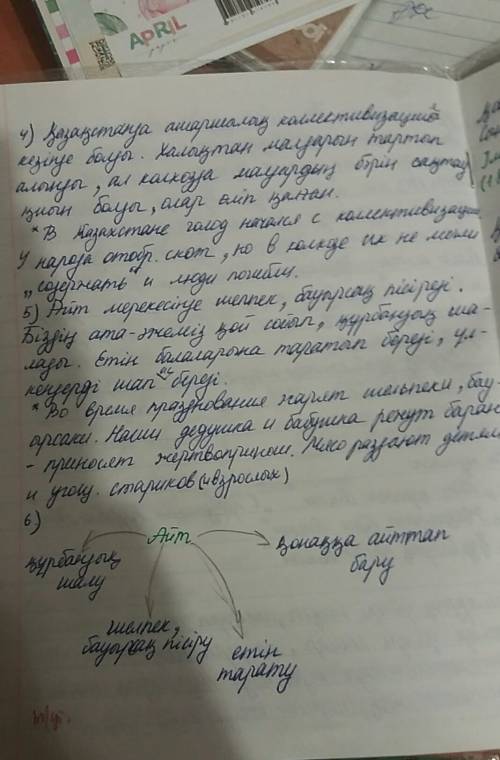 APRIL
4) Қазақстанда ашаршалық коллективизация
кезінде болды. Халықтан малдарын тартып
алынды, ал колхозда малдардың бірін сақтау
қиын болды, олар өліп қалған.
* В Казахстане голод начался с коллективизации,
У народа отобр. скот, но в колхозе их не могли
"содержать" и люди погибли.
5) Айт мерекесінде шелпек, бауырсақ пісіреді.
Біздің ата-әжеміз қой сойып, құрбандық ша-
лады. Етін балаларына таратып береді, үл-
кендерді шай береді.
* Во время празднования жарят шельпеки, бау-
ырсаки. Наши дедушка и бабушка режут барана
- приносят жертвоприном. Мясо раздают детям
и угощ. стариков (и взрослых)
6)
Айт
құрбандық
шалу
қонаққа айттап
бару
шелпек,
бауырсақ пісіру
етін
тарату